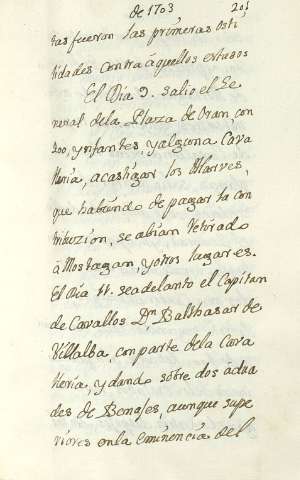 de 1703
201
tas fueron las primeras osti
lidades contra aquellos estados
El Dia 9. salio el Ge
neral dela Plaza de Oran, con
300, ynfantes, y alguna Cava
lleria, a castigar los Alarves,
que habiendo de pagar la con
tribuzion, se abian retirado
à Mostagan, y otros lugares.
El Dia 11. se adelanto el Capitan
de Cavallos Dn. Balthasar de
Villalba, con parte dela Cava
lleria, y dando sobre dos adua
des de Benajes, aunque supe
riores en la eminencia del